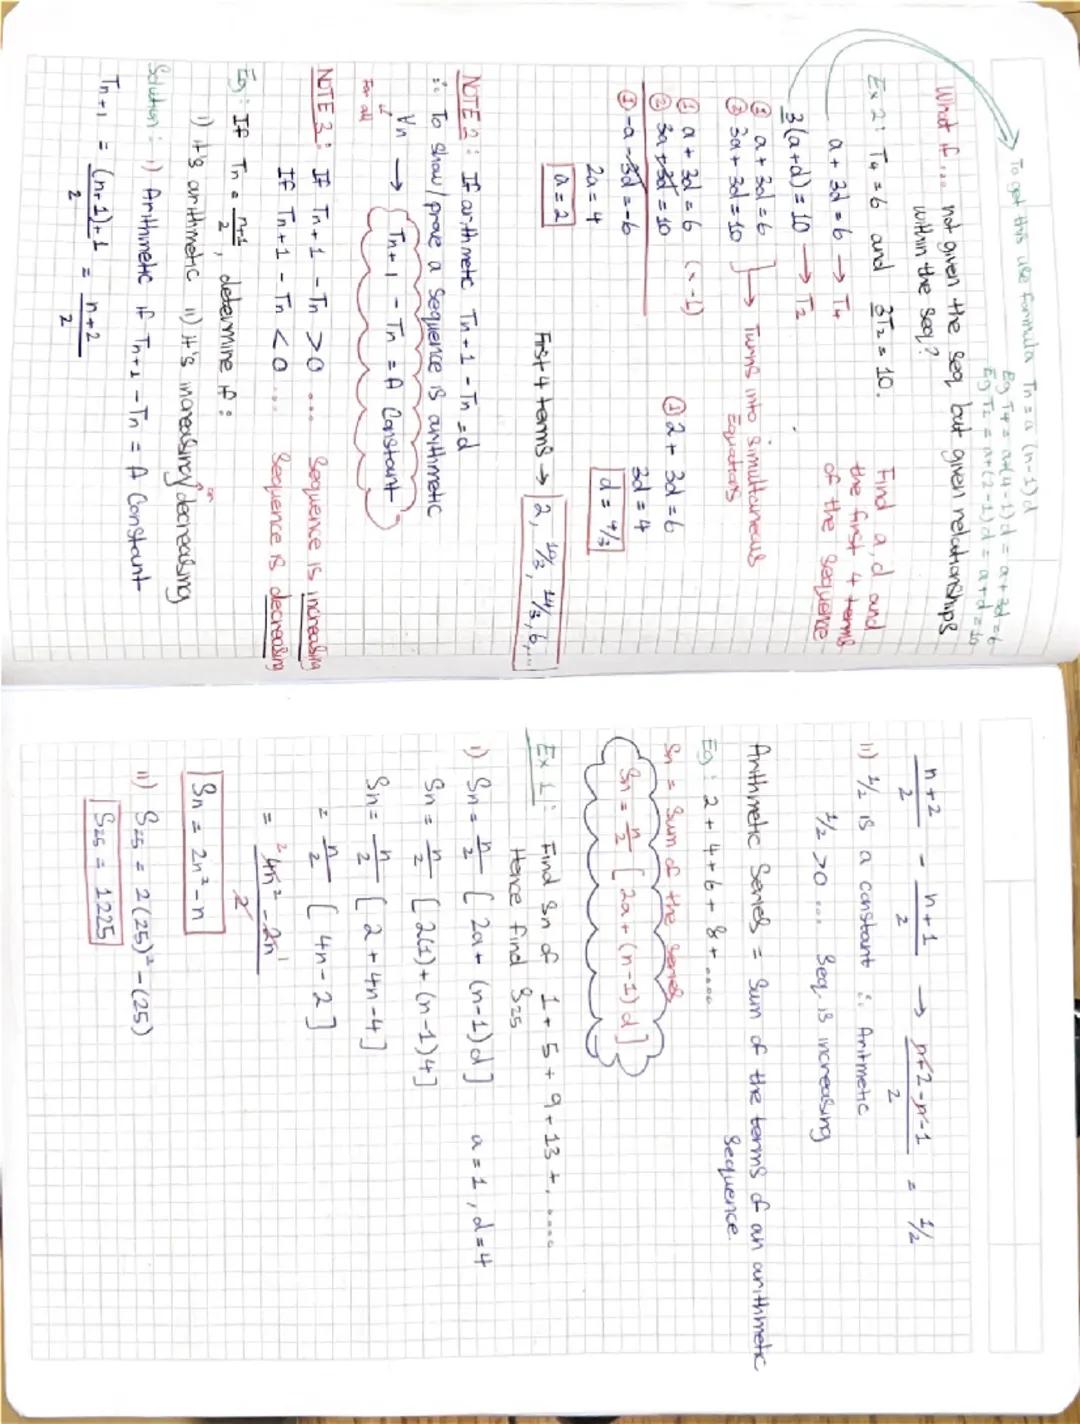 To get this use formula Tn = a (n-1)d
Eg T4 = a+(4-1)d = a+3d = 6
Eg T2 = a+(2-1)d = a+d = 10
What if... not given the seq but given relationships
within the seq?
Ex 2: T4 = 6 and 3T2 = 10. Find a, d and
the first 4 terms
of the sequence
a + 3d = 6 → T4
3(a+d) = 10 → T2
① a + 3d = 6
② 3a + 3d = 10 → Turns into simultaneous
Equations
① a + 3d = 6 (x -1)
② 3a + 3d = 10
① -a - 3d = -6
2a = 4
a = 2
① 2 + 3d = 6
3d = 4
d = 4/3
First 4 terms → 2, 10/3, 14/3, 6,...
NOTE 2: If arithmetic Tn+1 - Tn = d
∴ To show/prove a sequence is arithmetic
∀n → Tn+1 - Tn = A Constant
For all
NOTE 3: If Tn+1 - Tn > 0 ... Sequence is increasing
If Tn+1 - Tn < 0 ... Sequence is decreasing
Eg: If Tn = n+1/2, determine if:
i) it's arithmetic ii) it's increasing/decreasing
Solution: i) Arithmetic if Tn+1 - Tn = A Constant
Tn+1 = (n+1)+1/2 = n+2/2
n+2/2 - n+1/2 → n+2-n-1/2 = 1/2
ii) 1/2 is a constant ∴ Aritmetic
1/2 > 0 ... Seq is increasing
Arithmetic Series = Sum of the terms of an arithmetic
Sequence.
Eg: 2 + 4 + 6 + 8 + ....
Sn = Sum of the series
Sn = n/2 [2a + (n-1)d]
Ex 1: Find Sn of 1 + 5 + 9 + 13 + .....
Hence find S25
i) Sn = n/2 [2a + (n-1)d] a = 1, d = 4
Sn = n/2 [2(1) + (n-1)4]
Sn = n/2 [2 + 4n - 4]
= n/2 [4n - 2]
= 4n² - 2n/2
Sn = 2n² - n
ii) S25 = 2(25)² - (25)
S25 = 1225